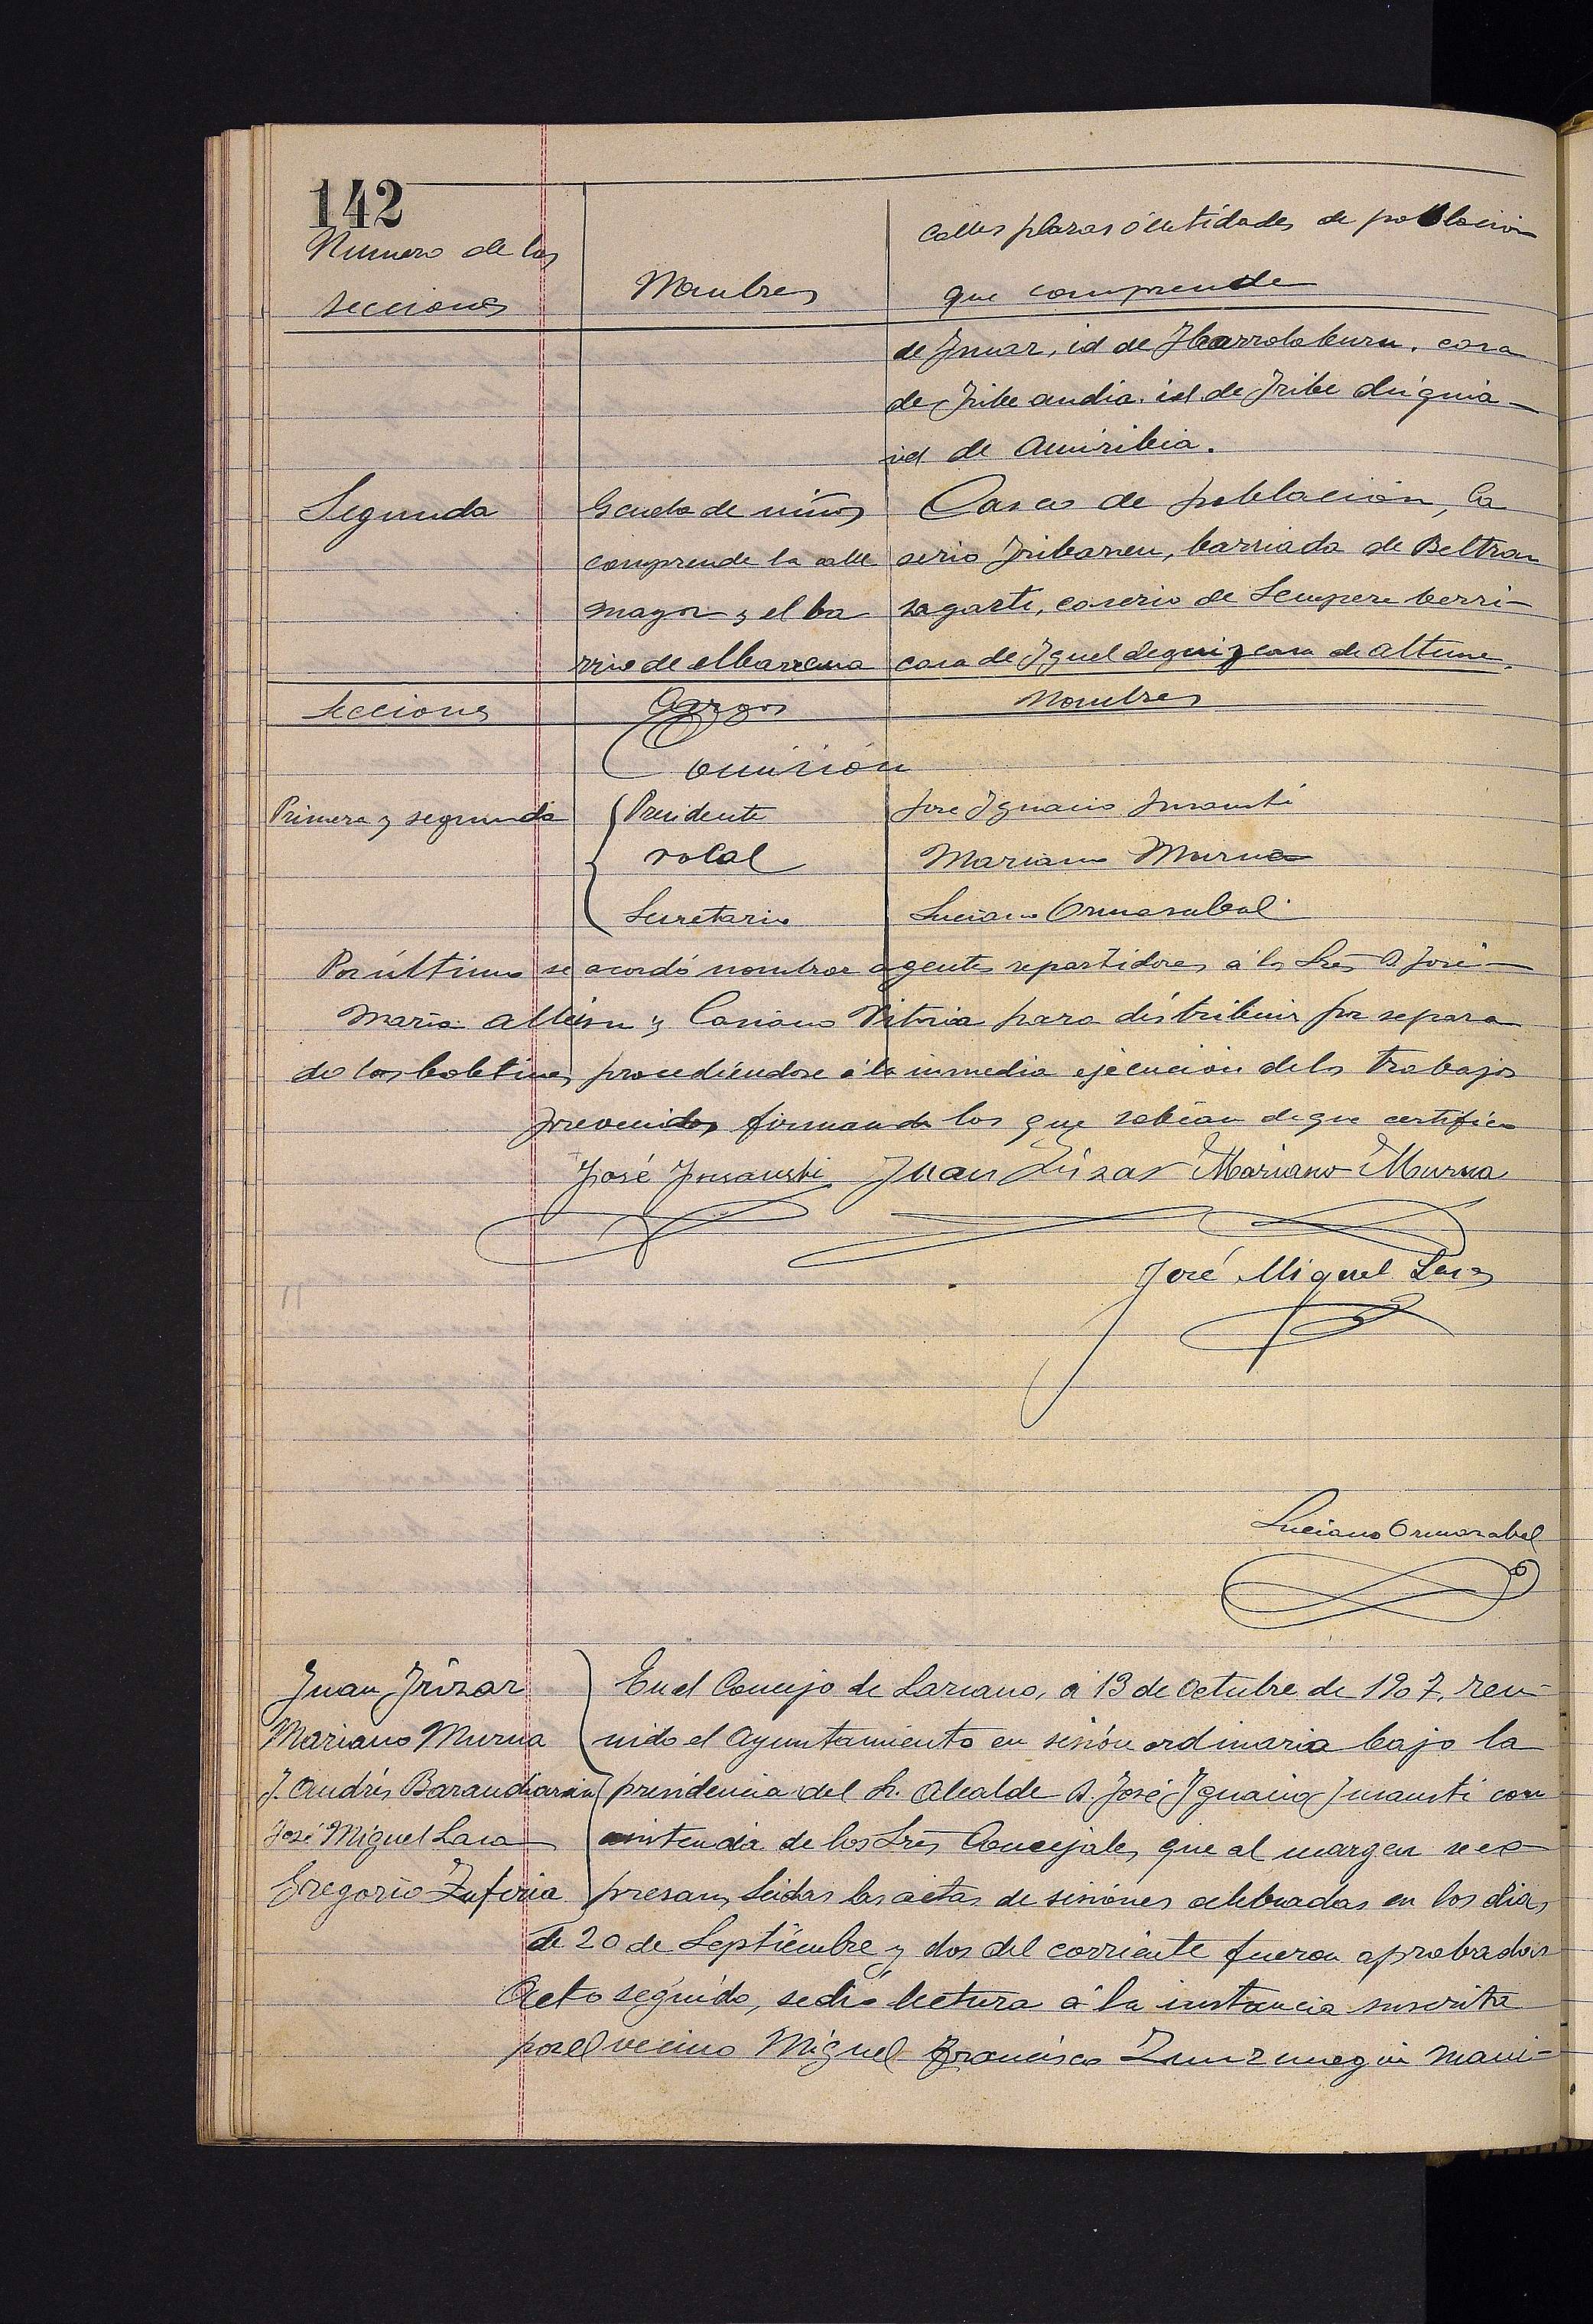 142
Numero de las
secciones
Nombres
calles plazas ó entidades de poblacion
que comprende
de Insuar, id de Ibarrolaburu, casa
de Iribe andia. id. de Iribe
id de Amiribia.
Segunda
Escuela de niños
comprende la calle
mayor y el ba
rrio de elbarrena
Casco de poblacion, Ca
serio Iribarren, barriada de Beltran
sagasti, caserio de Sempere berri-
casa de y casa de altune.
Secciones
Cargos
Nombres
Comisión
Primera y segunda
Presidente
José Ignacio Insausti
vocal
Mariano Murua
Secretario
Luciano Ormazabal
Por último se acordó nombrar agentes repartidores á los Sres D José
Maria y Casiano Vitoria para distribuir por separa
do los boletines, procediéndose á la inmedia ejecucion delos trabajos
prevenidos firmando los que sabian de que certifico
José Insausti Juan Irizar Mariano Murua
José Miguel Lasa
Luciano Ormazabal
Juan Irizar
Mariano Murua
J. Andrés Barandiaran
José Miguel Lasa
Gregorio Zuferia
En el Concejo de Lazcano, á 13 de Octubre de 1907, reu-
nido el Ayuntamiento en sesión ordinaria bajo la
presidencia del Sr. Alcalde D. José Ignacio Insausti con
asistencia de los Sres Concejales que al margen se ex
presan, leidas las actas de sesiónes celebradas en los dias
de 20 de Septiembre y dos del corriente fueron aprobadas
Acto seguido, se dió lectura á la instancia suscrita
por el vecino Miguel Francisco Zunzunegui mani-